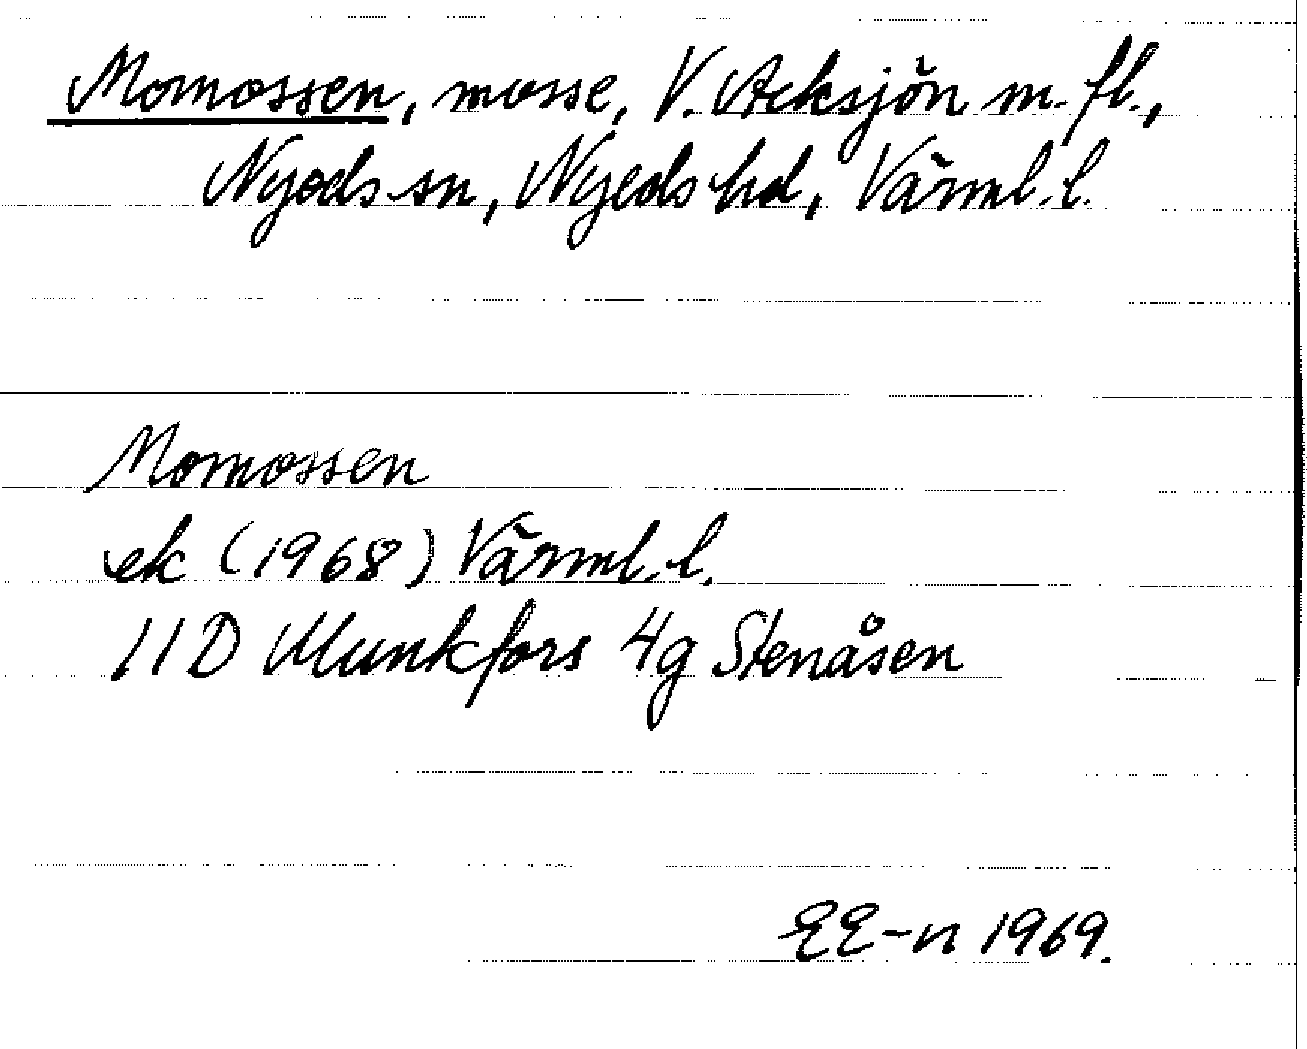 Momossen, mosse, V. Acksjön m. fl.,
Nyeds sn, Nyeds hd, Värml. l.
Momossen
ek (1968) Värml. l.
11D Munkfors 4g Stenåsen
EE-n 1969.